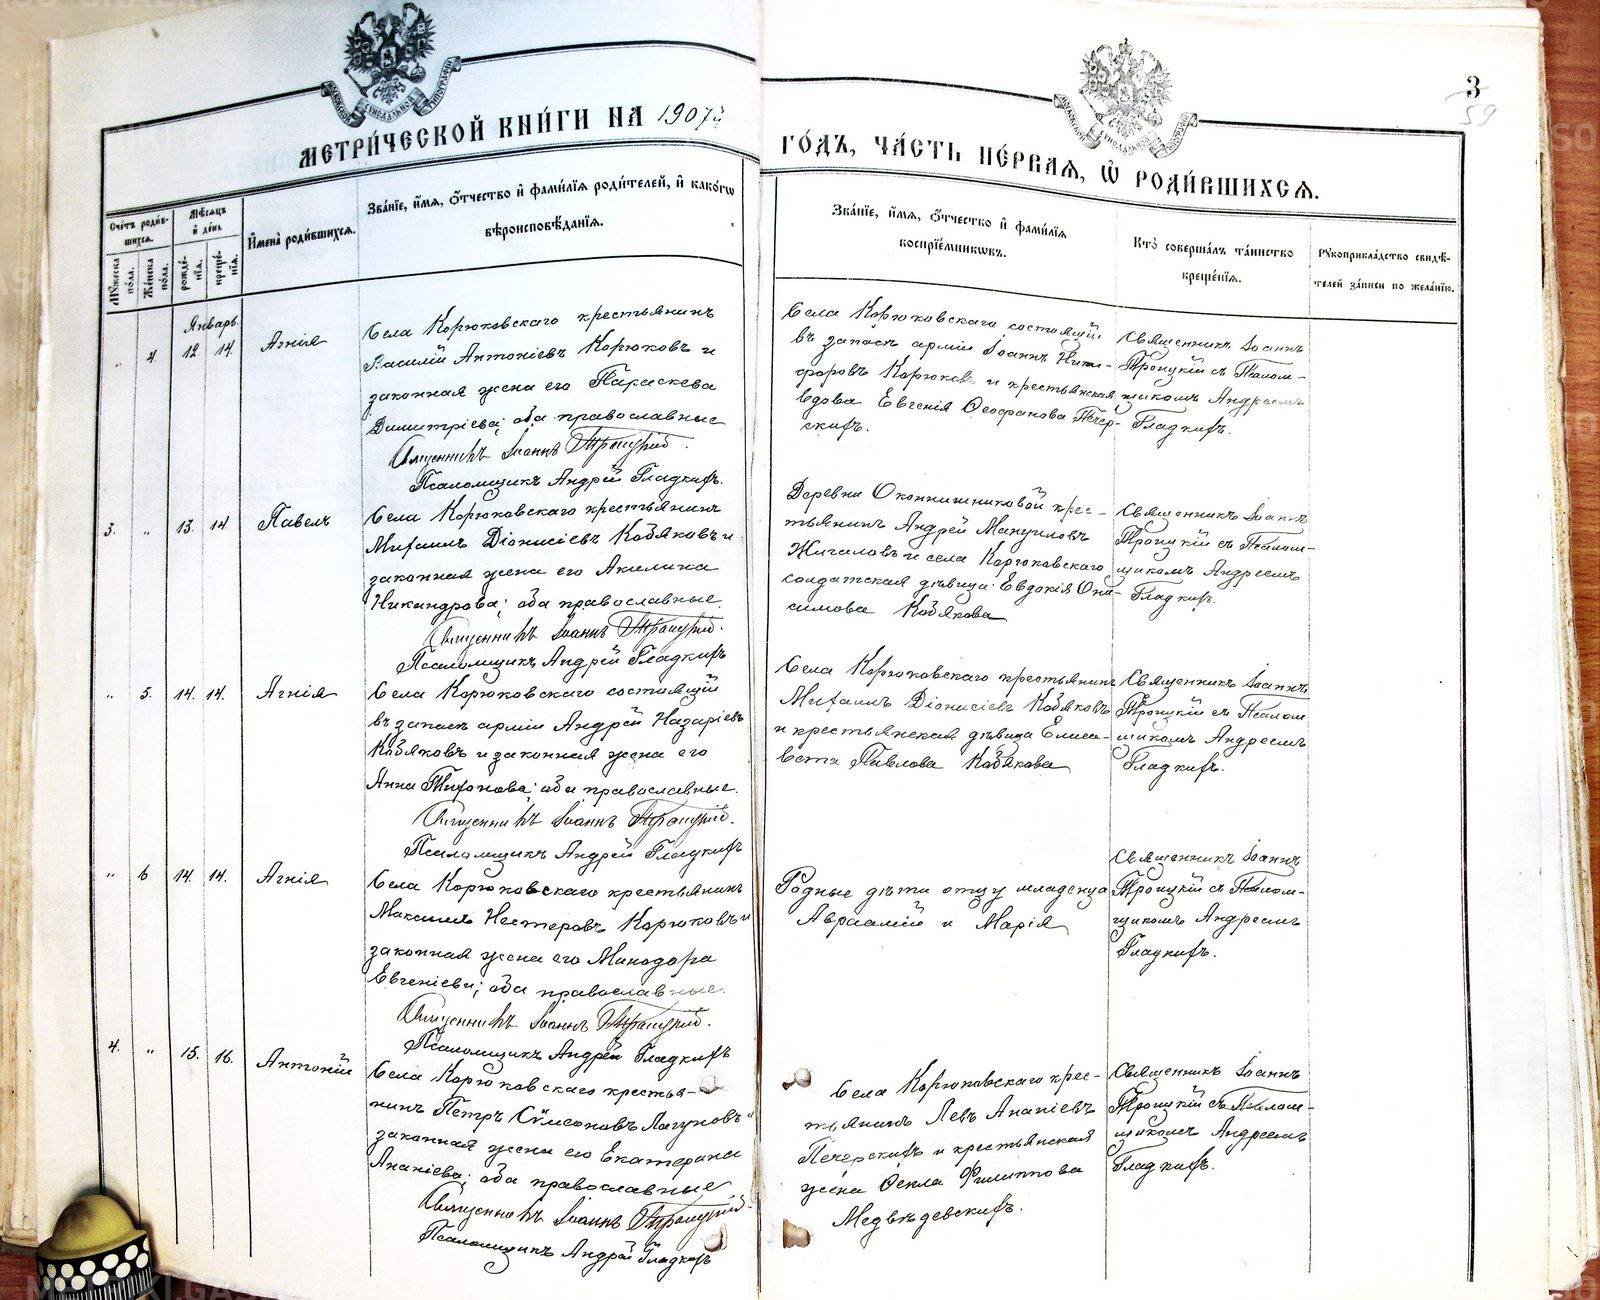 МЕТРИ́ЧЕСКОЙ КНИ́ГИ НА 1907й
ГО́ДЪ, ЧА́СТЬ ПЕ́РВАЯ, Ѡ҆ РОДИ́ВШИХСЯ.
3
59
Сче́тъ роди́в-
шихся.
Му́жеска по́ла.
Же́нска по́ла.
Мѣ́сяцъ и҆ де́нь
рожде́-
нїя.
креще́-
нїя.
И҆мена̀ роди́вшихся.
Зва́нїе, и҆́мя, ѻ҆́тчество и҆ фами́лїя роди́телей, и҆ како́гѡ
вѣроисповѣ́данїя.
Зва́нїе, и҆́мя, ѻ҆́тчество и҆ фами́лїя
воспрїе́мникѡвъ.
Кто̀ соверша́лъ та́инство
креще́нїя.
Рукоприкла́дство свидѣ́-
телей за́писи по жела́нїю.
Январь.
„ 4. 12 14. Агнія
Села Корюковскаго крестьянинъ
Василій Антоніевъ Корюковъ и
законная жена его Параскева
Димитріева; оба православные
Священникъ Іоаннъ Троицкій.
Псаломщикъ Андрей Гладкихъ.
Села Корюковскаго состоящій
въ запасѣ арміи Іоаннъ Ники-
форовъ Корюковъ и крестьянская
вдова Евгенія Ѳеофанова Печер-
скихъ.
Священникъ Іоаннъ
Троицкій съ Псалом-
щикомъ Андреемъ
Гладкихъ.
3. „ 13. 14. Павелъ
Села Корюковскаго крестьянинъ
Михаилъ Діонисіевъ Кобяковъ и
законная жена его Акилина
Никандрова; оба православные.
Священникъ Іоаннъ Троицкій.
Псаломщикъ Андрей Гладкихъ
Деревни Оконишниковой крес-
тьянинъ Андрей Мануиловъ
Жигаловъ и села Корюковскаго
солдатская дѣвица Евдокія Они-
симова Кобякова
Священникъ Іоаннъ
Троицкій съ Псалом-
щикомъ Андреемъ
Гладкихъ.
„ 5. 14. 14. Агнія
Села Корюковскаго состоящій
въ запасѣ арміи Андрей Назаріевъ
Кобяковъ и законная жена его
Анна Тихонова; оба православные.
Священникъ Іоаннъ Троицкій.
Псаломщикъ Андрей Гладкихъ
Села Корюковскаго крестьянинъ
Михаилъ Діонисіевъ Кобяковъ
и крестьянская дѣвица Елиса-
вета Павлова Кобякова
Священникъ Іоаннъ
Троицкій съ Псалом-
щикомъ Андреемъ
Гладкихъ.
„ 6 14. 14. Агнія
Села Корюковскаго крестьянинъ
Максимъ Нестеровъ Корюковъ и
законная жена его Минодора
Евгеніева; оба православные.
Священникъ Іоаннъ Троицкій.
Псаломщикъ Андрей Гладкихъ
Родные дѣти отцу младенца
Авраамій и Марія
Священникъ Іоаннъ
Троицкій съ Псалом-
щикомъ Андреемъ
Гладкихъ.
4. „ 15. 16. Антоній
Села Корюковскаго крестья-
нинъ Петръ Сѵмеоновъ Лагуновъ и
законная жена его Екатерина
Ананіева; оба православные
Священникъ Іоаннъ Троицкій.
Псаломщикъ Андрей Гладкихъ
Села Корюковскаго крес-
тьянинъ Левъ Ананіевъ
Печерскихъ и крестьянская
жена Ѳекла Филиппова
Медвѣдевскихъ.
Священникъ Іоаннъ
Троицкій съ Псалом-
щикомъ Андреемъ
Гладкихъ.